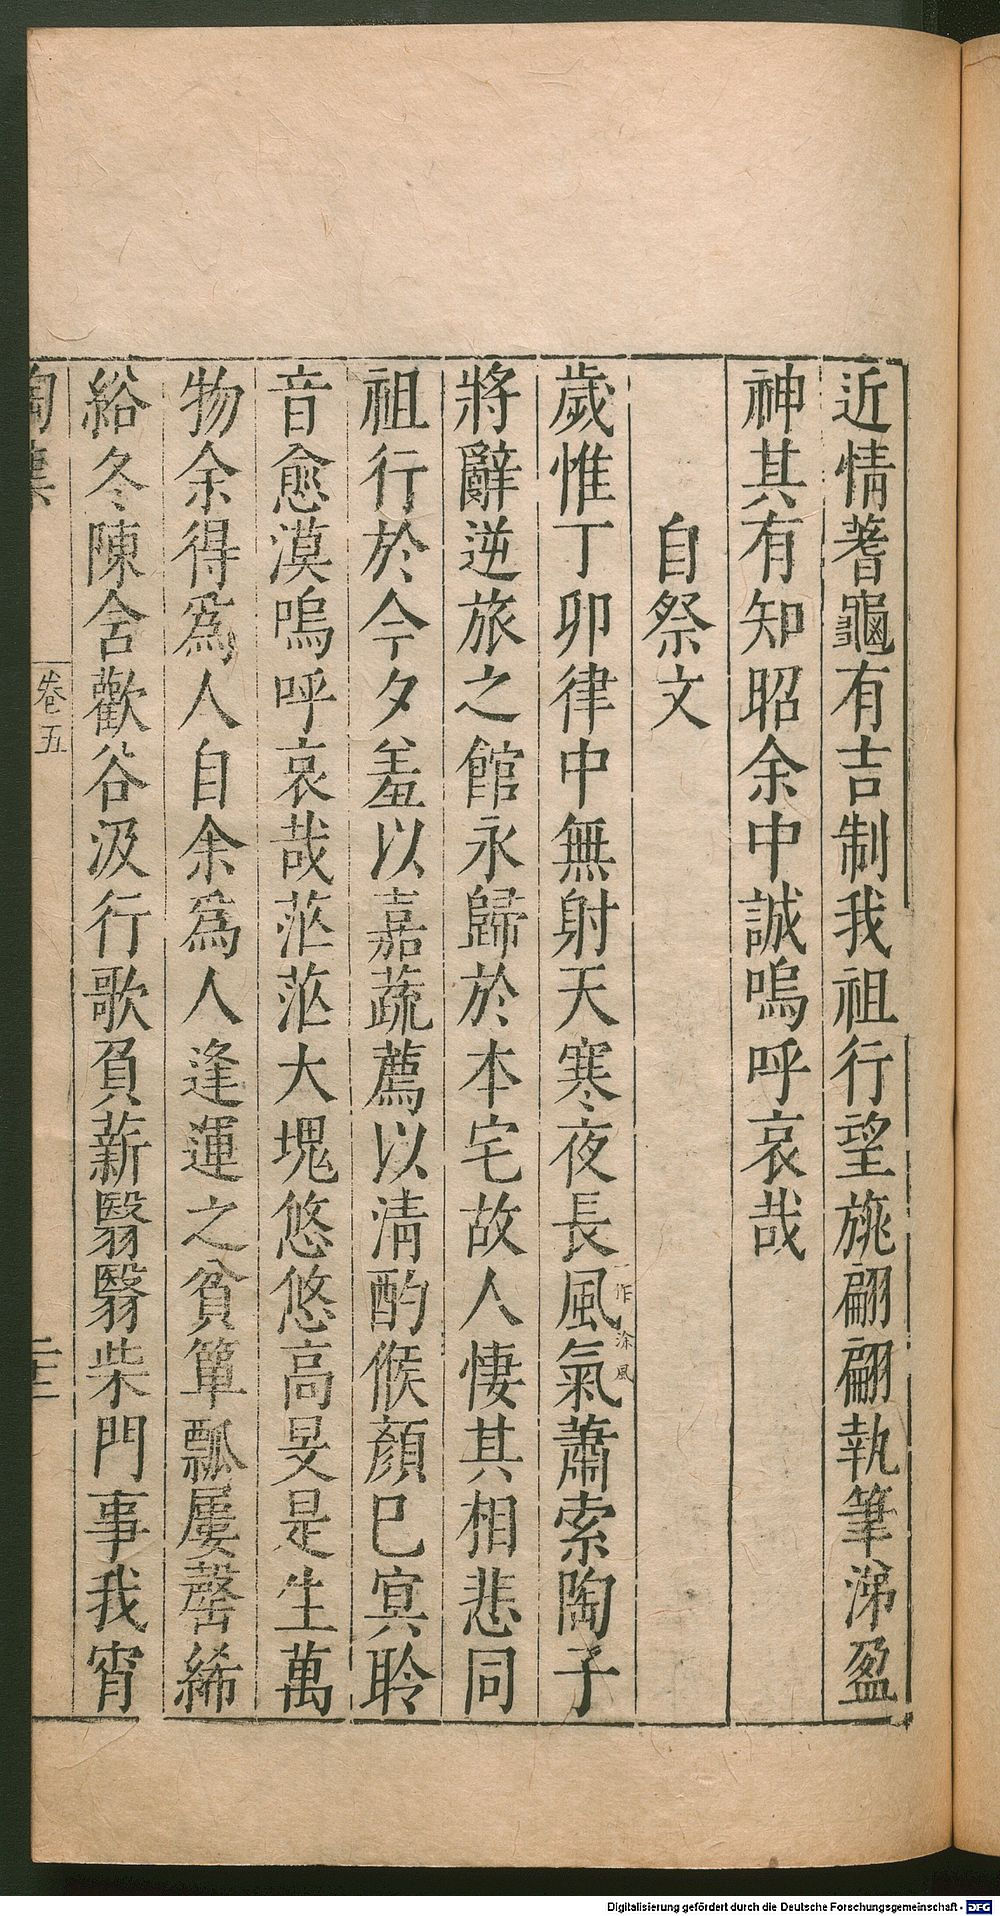 近情蓍龜有吉制我祖行望旐翩翩執筆涕盈
神其有知昭余中誠嗚呼哀哉
自祭文
歲惟丁卯律中無射天寒夜長風氣蕭索陶子
一作涼風
將辭逆旅之館永歸於本宅故人悽其相悲同
祖行於今夕羞以嘉蔬薦以清酌候顏已寘聆
音愈漠嗚呼哀哉茫茫大塊悠悠高旻是生萬
物余得爲人自余爲人逢運之貧簞瓢屢罄絺
綌冬陳含歡谷汲行歌負薪翳翳柴門事我宵
陶集
卷五
二十二
Digitalisierung gefördert durch die Deutsche Forschungsgemeinschaft - DFG